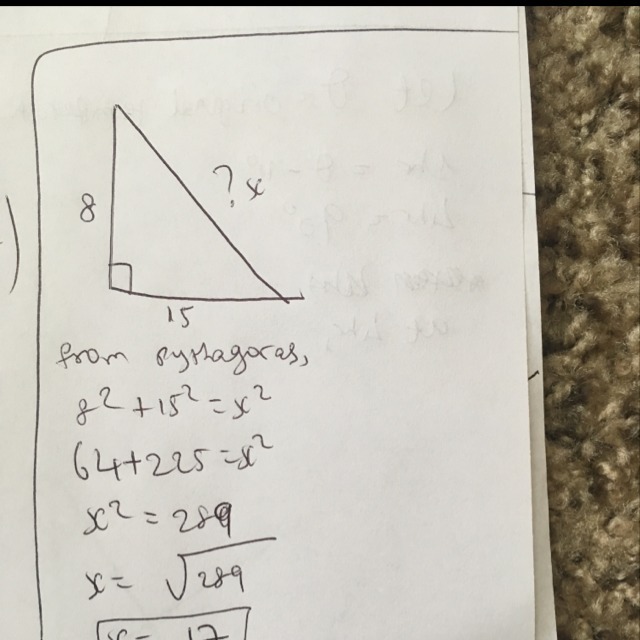 8
? x
15
from pythagoras,
8² + 15² = x²
64 + 225 = x²
x² = 289
x = √289
x = 17